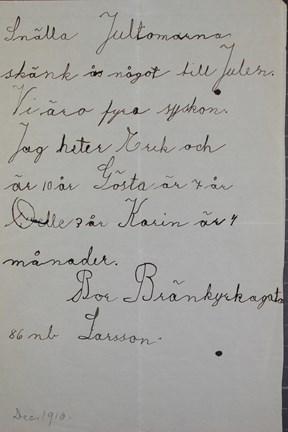 Snälla Jultomarna
skänk oss något till Julen.
Vi äro fyra syskon.
Jag heter Erik och
är 10 år Gösta är 7 år
Olle 3 år Karin är 4
månader.
Bor Bränkyrkagatan
86 nb Larsson.
Dec. 1910.